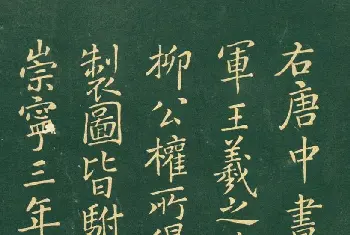 右唐中書
軍王羲之
柳公權所
製圖皆駙
崇寧三年